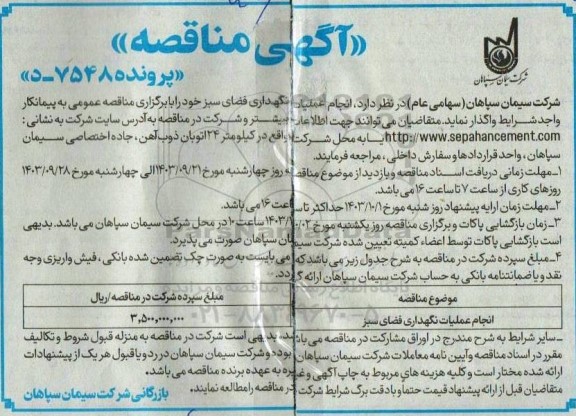 «آگهی مناقصه»
«پرونده ۷۵۴۸-د»
شرکت سیمان سپاهان
شرکت سیمان سپاهان (سهامی عام) در نظر دارد، انجام عملیات نگهداری فضای سبز خود را با برگزاری مناقصه عمومی به پیمانکار
واجد شرایط واگذار نماید. متقاضیان می توانند جهت اطلاعات بیشتر و شرکت در مناقصه به آدرس سایت شرکت به نشانی:
http://www.sepahancement.com یا به محل شرکت واقع در کیلومتر ۲۴ اتوبان ذوب آهن، جاده اختصاصی سیمان
سپاهان، واحد قراردادها و سفارش داخلی، مراجعه فرمایند.
۱-مهلت زمانی دریافت اسناد مناقصه و بازدید از موضوع مناقصه روز چهارشنبه مورخ ۱۴۰۳/۰۹/۲۱ الی چهارشنبه مورخ ۱۴۰۳/۰۹/۲۸
روزهای کاری از ساعت ۷ تا ساعت ۱۶ می باشد.
۲-مهلت زمان ارایه پیشنهاد روز شنبه مورخ ۱۴۰۳/۱۰/۱ حداکثر تا ساعت ۱۶ می باشد.
۳-زمان بازگشایی پاکات و برگزاری مناقصه روز یکشنبه مورخ ۱۴۰۳/۱۰/۰۲ ساعت ۱۰ در محل شرکت سیمان سپاهان می باشد. بدیهی
است بازگشایی پاکات توسط اعضاء کمیته تعیین شده شرکت سیمان سپاهان صورت می پذیرد.
۴-مبلغ سپرده شرکت در مناقصه به شرح جدول زیر می باشد که می بایست به صورت چک تضمین شده بانکی، فیش واریزی وجه
نقد و یا ضمانتنامه بانکی به حساب شرکت سیمان سپاهان ارائه گردد.
موضوع مناقصه مبلغ سپرده شرکت در مناقصه/ریال
انجام عملیات نگهداری فضای سبز ۳,۵۰۰,۰۰۰,۰۰۰
-سایر شرایط به شرح مندرج در اوراق مشارکت در مناقصه می باشد، بدیهی است شرکت در مناقصه به منزله قبول شروط و تکالیف
مقرر در اسناد مناقصه و آیین نامه معاملات شرکت سیمان سپاهان بوده و شرکت سیمان سپاهان در رد و یا قبول هر یک از پیشنهادات
ارائه شده مختار است و کلیه هزینه های مربوط به چاپ آگهی و غیره به عهده برنده مناقصه می باشد.
متقاضیان قبل از ارائه پیشنهاد قیمت حتما و با دقت برگ شرایط شرکت در مناقصه را مطالعه نمایند.
بازرگانی شرکت سیمان سپاهان